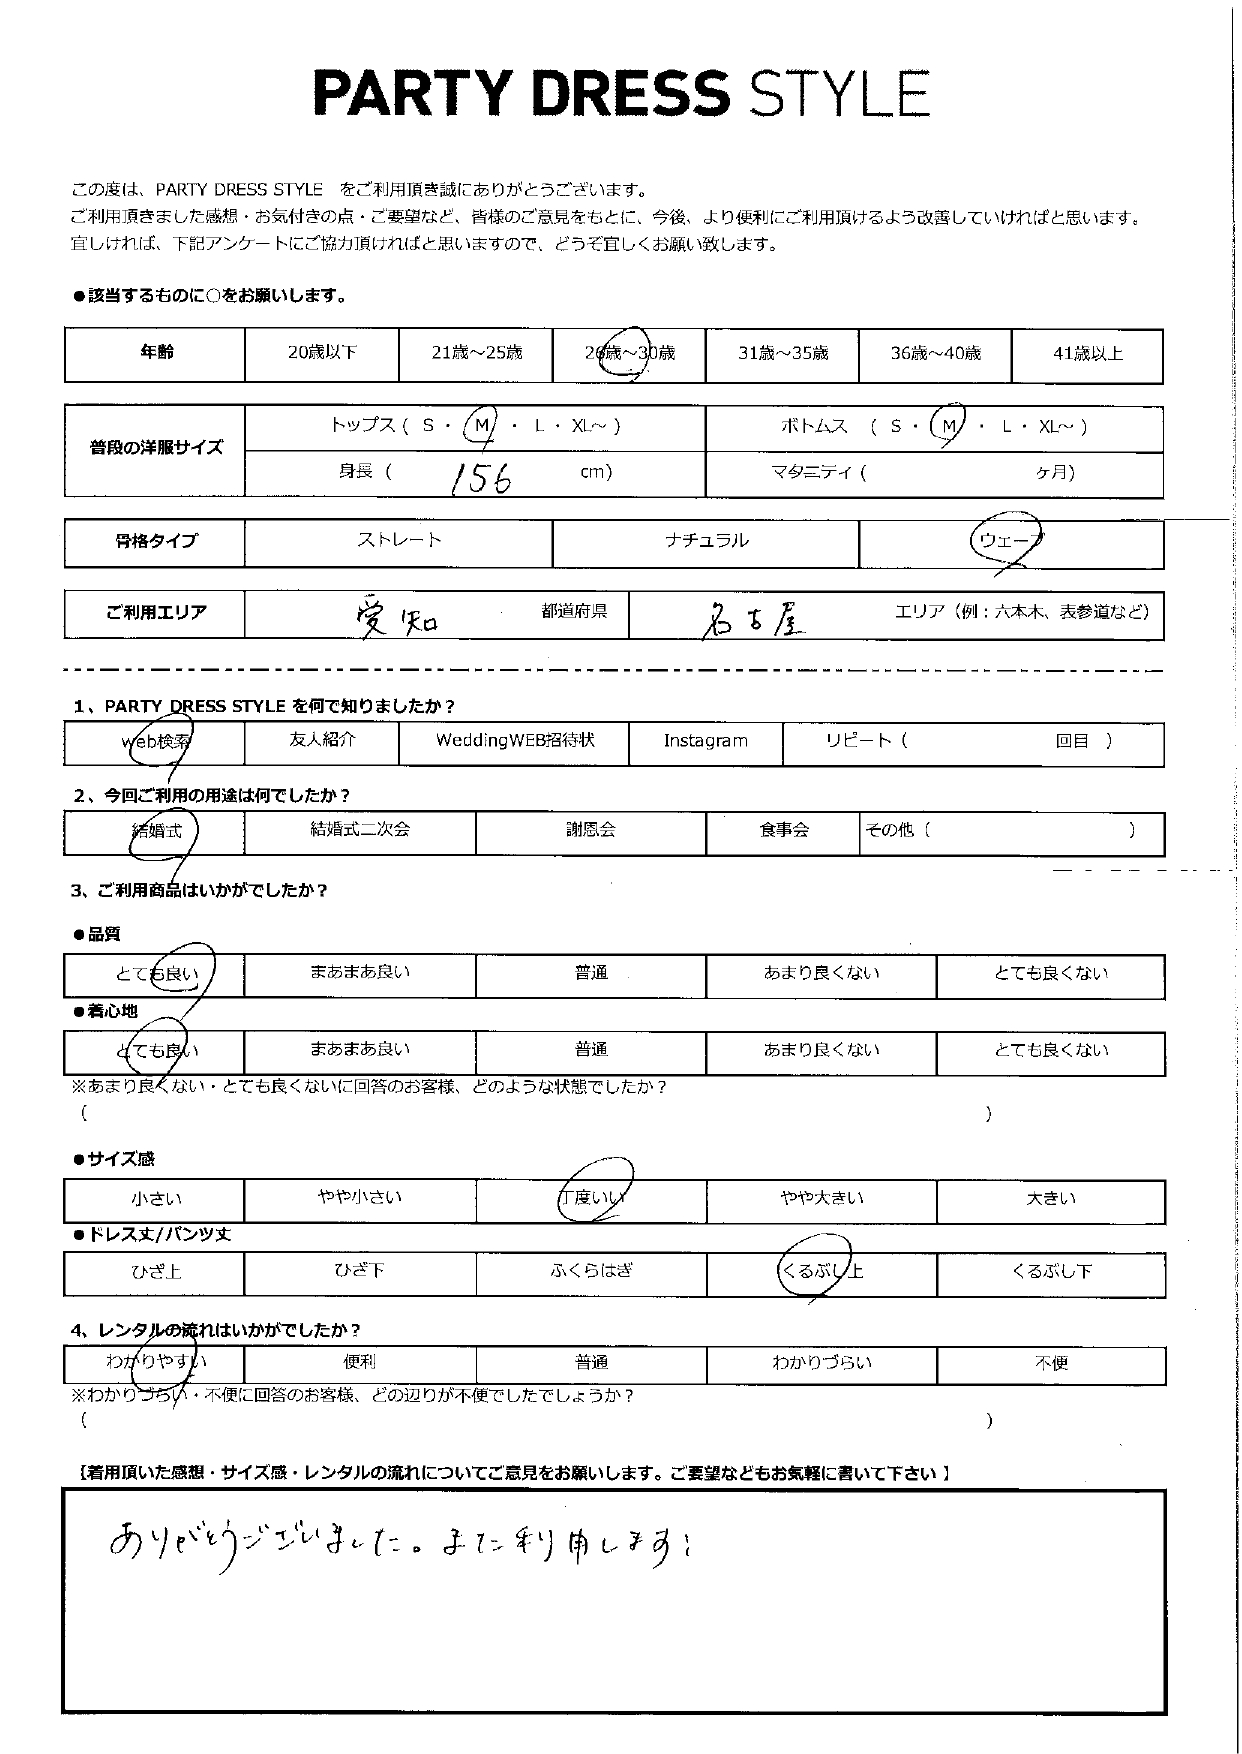 PARTY DRESS STYLE
この度は、PARTY DRESS STYLE をご利用頂き誠にありがとうございます。
ご利用頂きました感想・お気付きの点・ご要望など、皆様のご意見をもとに、今後、より便利にご利用頂けるよう改善していければと思います。
宜しければ、下記アンケートにご協力頂ければと思いますので、どうぞ宜しくお願い致します。
●該当するものに○をお願いします。
年齢 20歳以下 21歳～25歳 26歳～30歳 31歳～35歳 36歳～40歳 41歳以上
普段の洋服サイズ トップス ( S ・ M ・ L ・ XL～ ) ボトムス ( S ・ M ・ L ・ XL～ )
身長 ( 156 cm) マタニティ ( ヶ月)
骨格タイプ ストレート ナチュラル ウェーブ
ご利用エリア 愛知 都道府県 名古屋 エリア（例：六本木、表参道など）
1、PARTY DRESS STYLE を何で知りましたか？
web検索 友人紹介 WeddingWEB招待状 Instagram リピート ( 回目 )
2、今回ご利用の用途は何でしたか？
結婚式 結婚式二次会 謝恩会 食事会 その他 ( )
3、ご利用商品はいかがでしたか？
●品質
とても良い まあまあ良い 普通 あまり良くない とても良くない
●着心地
とても良い まあまあ良い 普通 あまり良くない とても良くない
※あまり良くない・とても良くないに回答のお客様、どのような状態でしたか？
( )
●サイズ感
小さい やや小さい 丁度いい やや大きい 大きい
●ドレス丈/パンツ丈
ひざ上 ひざ下 ふくらはぎ くるぶし上 くるぶし下
4、レンタルの流れはいかがでしたか？
わかりやすい 便利 普通 わかりづらい 不便
※わかりづらい・不便に回答のお客様、どの辺りが不便でしたでしょうか？
( )
【着用頂いた感想・サイズ感・レンタルの流れについてご意見をお願いします。ご要望などもお気軽に書いて下さい】
ありがとうございました。また利用します!